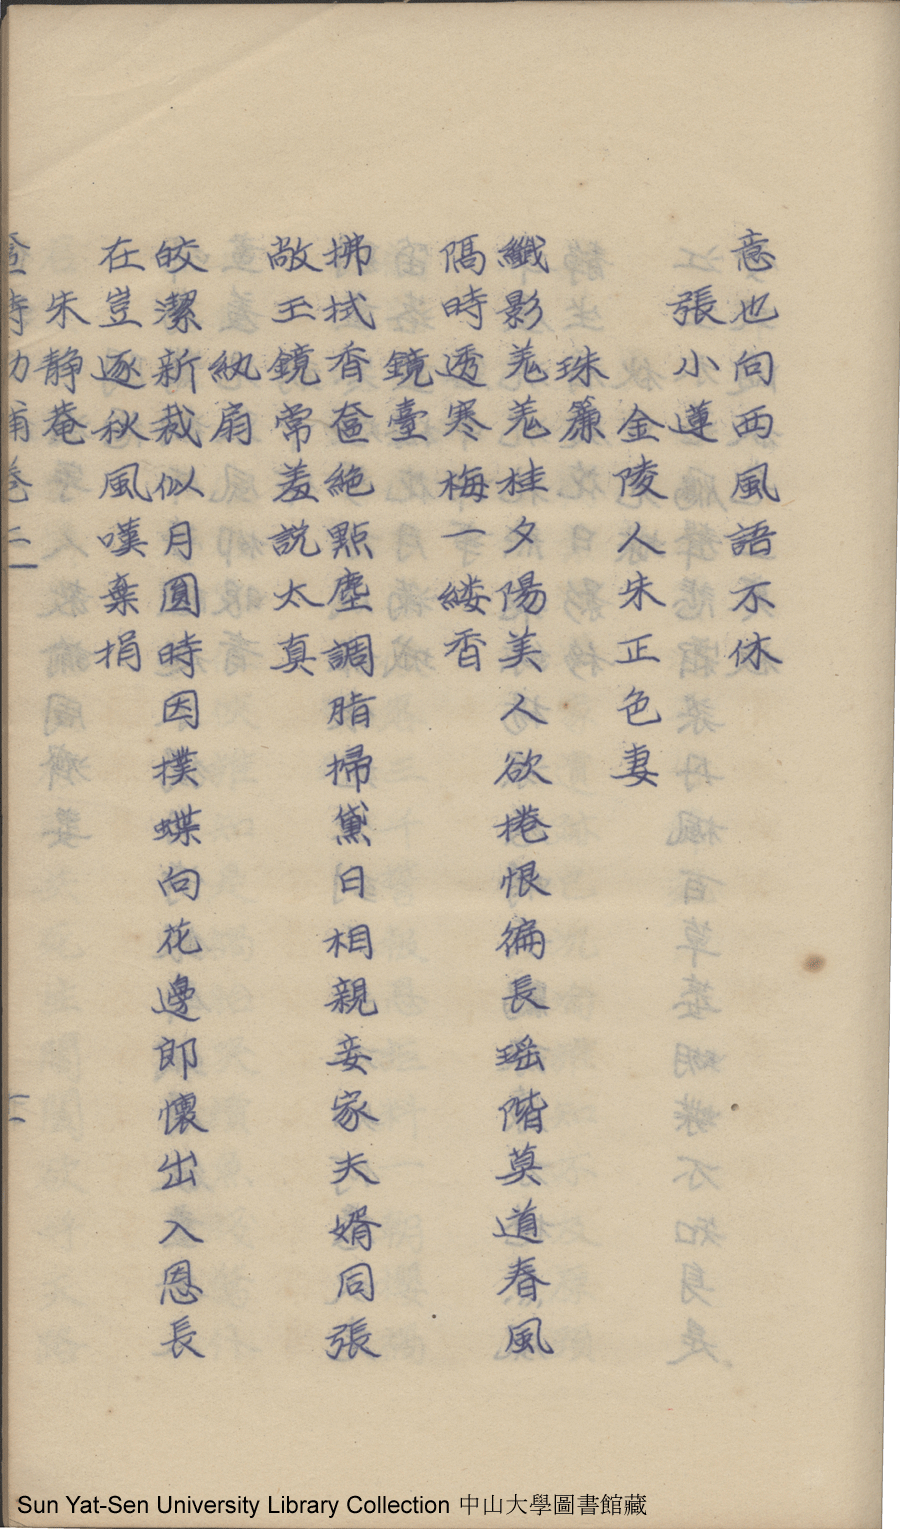 意也向西風語不休
張小蓮
金陵人朱正色妻
珠簾
纖影羌羌桂夕陽美人欲捲恨偏長瑶階莫道春風
隔時透寒梅一縷香
鏡臺
拂拭香奩絶點塵調脂掃黛日相親妾家夫婿同張
敞玉鏡常羞說太真
紈扇
皎潔新裁似月圓時因撲蝶向花邊郎懷出入恩長
在豈逐秋風嘆棄捐
朱静菴
Sun Yat-Sen University Library Collection 中山大學圖書館藏